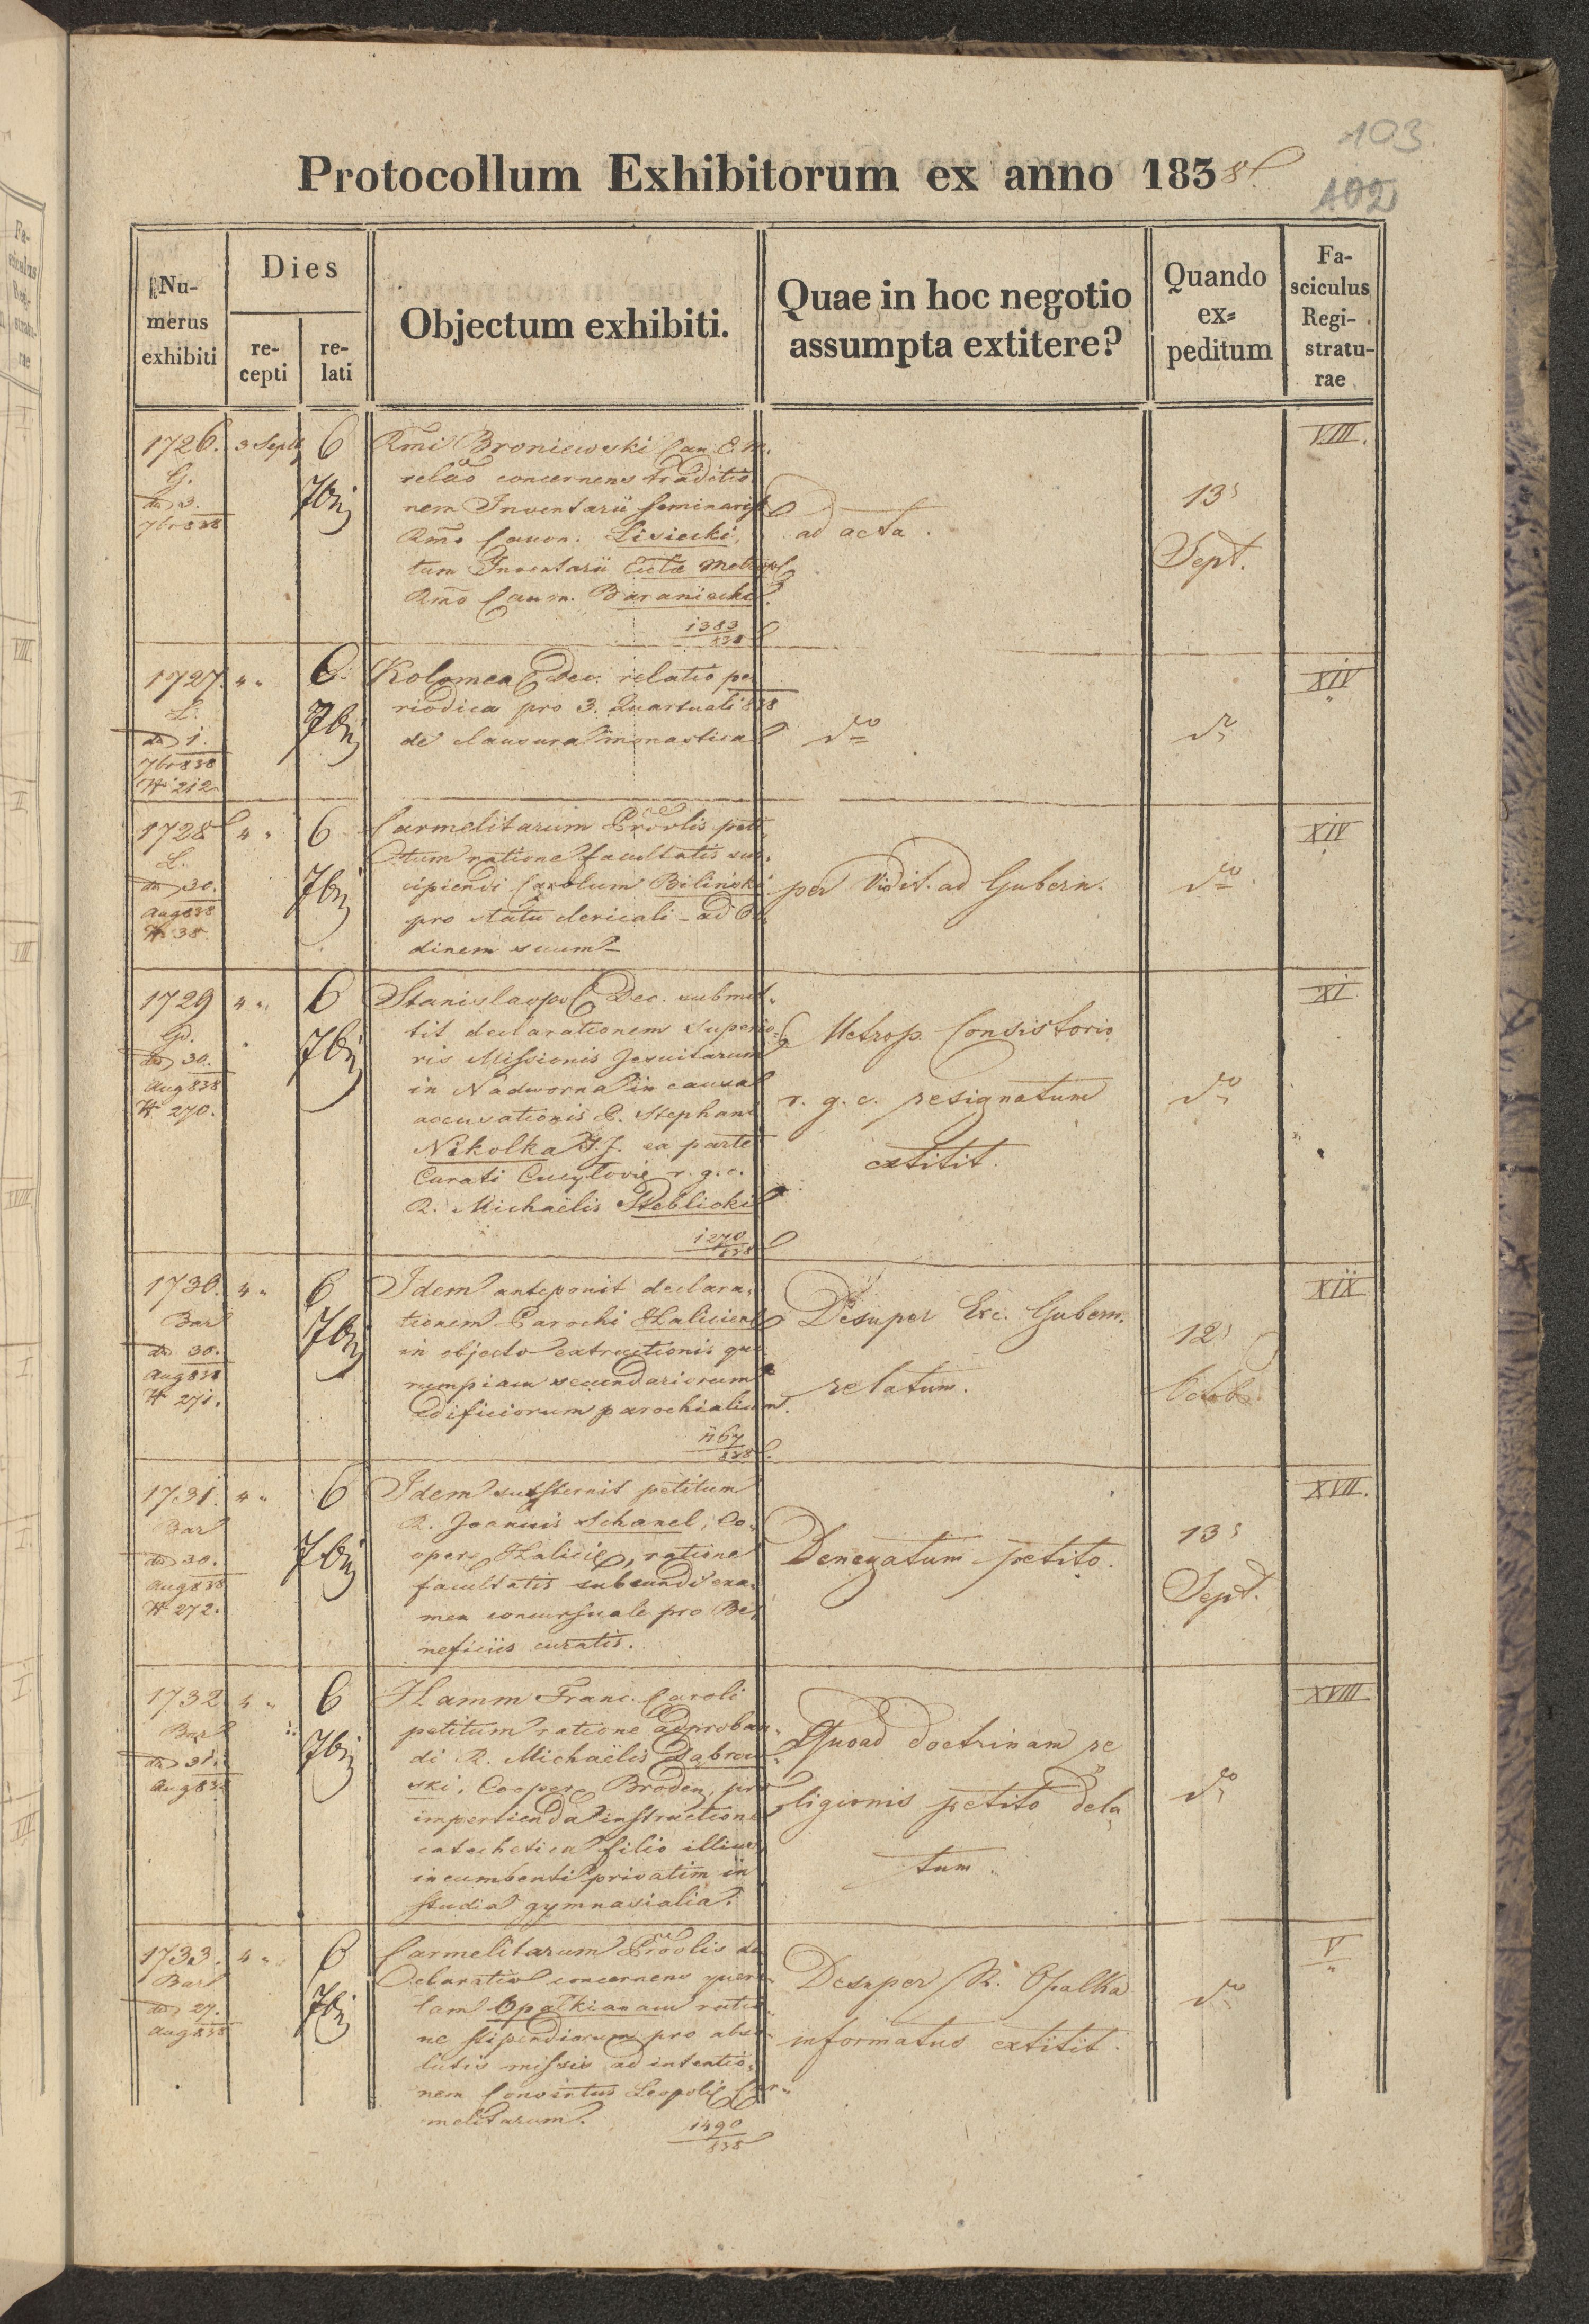 103.
102
Protocollum Exhibitorum ex anno 1838.
Nu-
merus
exhibiti
Dies
re-
cepti
re-
lati
Objectum exhibiti.
Quae in hoc negotio
assumpta extitere?
Quando
ex=
peditum
Fa-
sciculus
Regi-
stratu-
rae
1726. 3 Sept 6
G.
dto 3.
7br 838
7bi
Rmi Broniewski Can. E. M.
relao concernens traditio
nem Inventarii Seminarii
Rmo Canon. Lisiecki,
tum Inventarii Eccla Metrop
Rmo Canon. Baraniecki.
1383
838
ad acta.
13
Sept.
VIII.
1727. 4 " 6.
L.
dto 1.
7br 838
N 212
7bi
Kolomea Dec. relatio pe
riodica pro 3. Quartuali 838
de clausura monastica
dto
dto
XIV
1728 4 " 6
L.
dto 30.
Aug 838
N 38.
7bi
Carmelitarum Provlis peti
tum ratione facultatis sus
cipiendi Carolum Biliński
pro statu clericali - ad Or
dinem suum -
per Vidit. ad Gubern.
dto
XIV
1729 4 " 6
Gd.
dto 30.
Aug 838
N 270.
7bi
Stanislaopol Dec. submit
tit declarationem Superio
ris Missionis Jesuitarum
in Nadworna in causa
accusationis P. Stephani
Nikolka S.J. ex parte
Curati Cucylovie r. g. c.
R. Michaëlis Steblicki
1270
838
Metrop. Consistorio
r. g. c. resignatum
extitit.
dto
XI.
1730. 4 " 6
Bar
dto 30.
Aug 838
N 271.
7bi
Idem anteponit declara
tionem Parochi Haliciens
in objecto extructionis quo
rumpiam secundariorum
ædificiorum parochialium.
1167
838
Desuper Exc. Gubern.
relatum.
12
Octob.
XII
1731. 4 " 6
Bar
dto 30.
Aug 838
N 272.
7bi
Idem substernit petitum
R. Joannis Schanel, Co
oper. Haliciæ, ratione
facultatis subeundi exa
men concursuale pro Be
neficiis curatis.
Denegatum petito.
13
Sept.
XVII.
1732 4 " 6
Bar
dto 31.
Aug 838
7bi
Hamm Franc. Caroli
petitum ratione adproban
di R. Michaëlis Dąbrow
ski, Cooper. Broden, pro
impertienda instructione
catechetica filio illius
incumbenti privatim in
studia gymnasialia.
Quoad doctrinam re
ligionis petito dela
tum.
dto
XVIII
1733. 4 " 6
Bar
dto 27.
Aug 838
7bi
Carmelitarum Provlis de
claratio concernens quere
lam Opałkianam ratio
ne stipendiorum pro abso
lutis missis ad intentio
nem Conventus Leopoli Car
melitarum.
1490
838
Desuper R. Opalka
informatus extitit.
dto
V